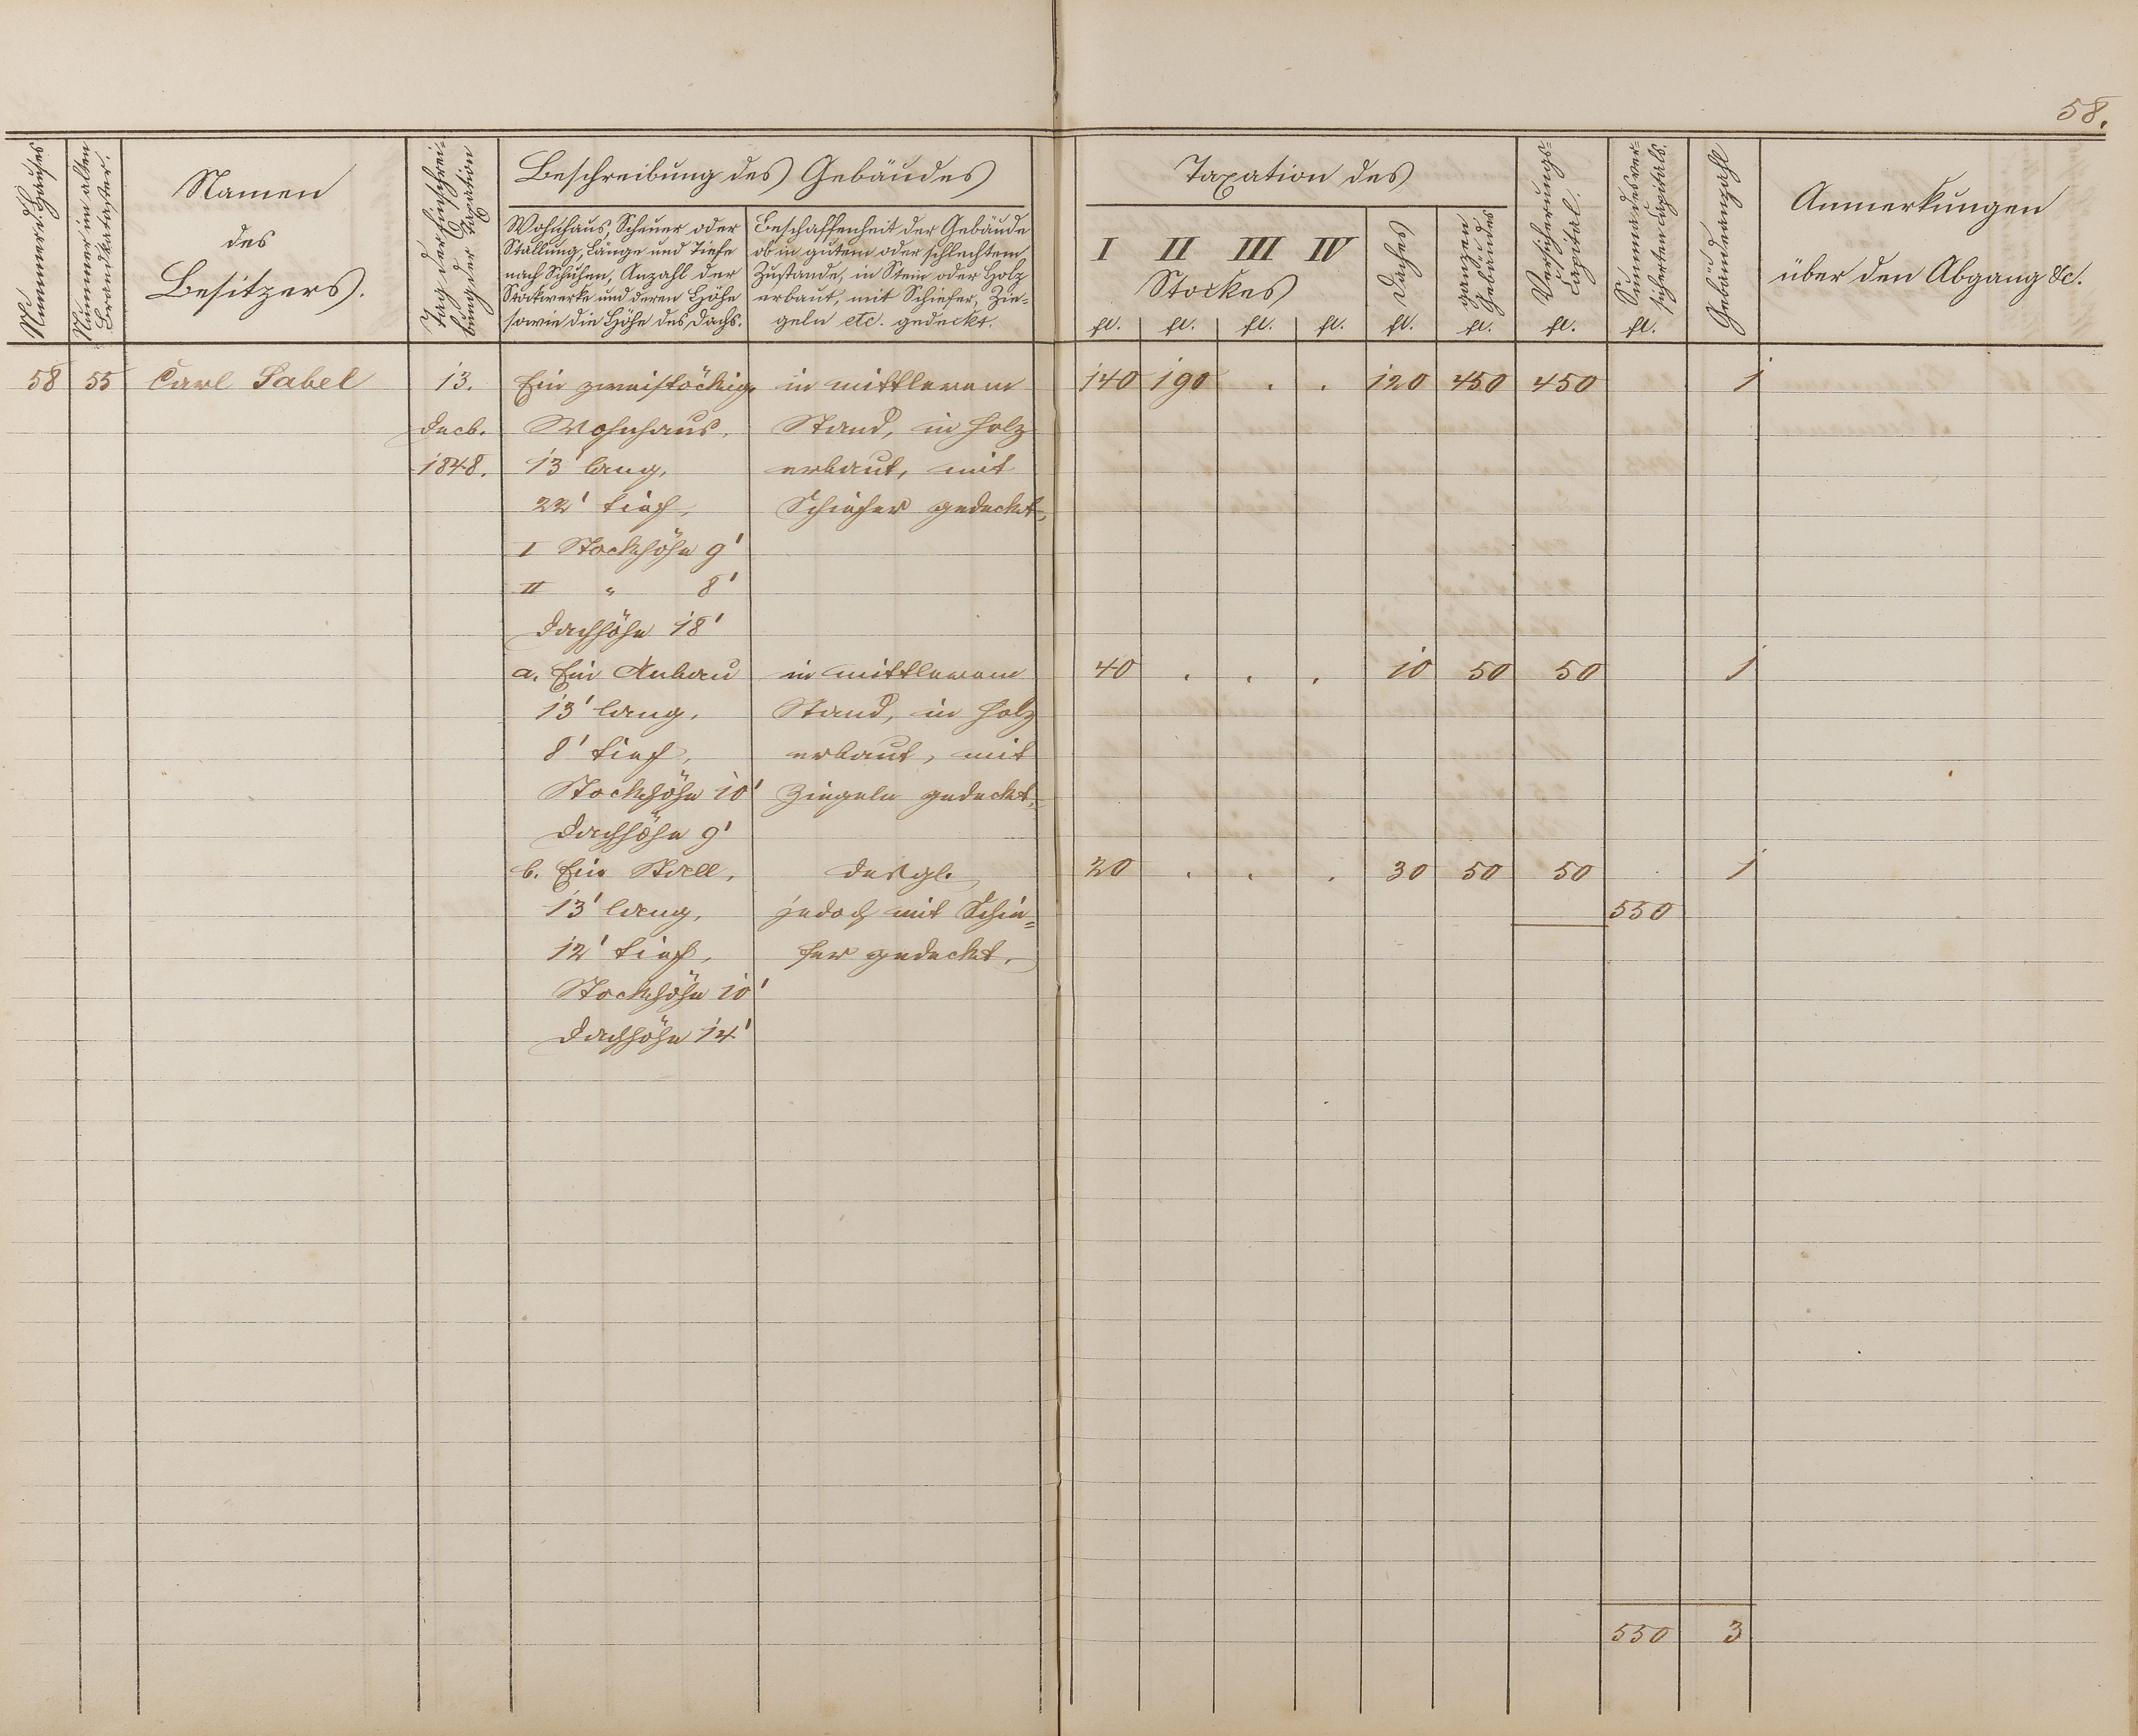 58.
Nummer d. Hauses
Nummer im alten
Brandkataster.
Namen
des
Besitzers.
Tag der Einschrei-
bung der Taxation
Beschreibung des Gebäudes
Wohnhaus, Scheuer oder
Stallung, Länge und Tiefe
nach Schuhen, Anzahl der
Stockwerke und deren Höhe
sowie die Höhe des Dachs.
Beschaffenheit der Gebäude
ob in gutem oder schlechtem
Zustande, in Stein oder Holz
erbaut, mit Schiefer, Zie-
geln etc. gedeckt.
Taxation des
I II III IV
Stockes
Daches
ganzen
Gebäudes
Versicherungs-
Capital.
Summa des ver-
sicherten Capitals.
Gebäudeanzahl
Anmerkungen
über den Abgang &c.
fl. fl. fl. fl. fl. fl. fl. fl.
58 55 Carl Sabel 13. Ein zweistöckig. in mittlerem 140 190 . . 120 450 450 1
Decb. Wohnhaus, Stand, in Holz
1848. 13' lang, erbaut, mit
22' tief, Schiefer gedeckt,
I Stockhöhe 9'
II " 8'
Dachhöhe 18'
a. Ein Anbau in mittlerem 40 . . . 10 50 50 1
13' lang, Stand, in Holz
8' tief, erbaut, mit
Stockhöhe 10' Ziegeln gedeckt,
Dachhöhe 9'
b. Ein Stall, desgl. 20 . . . 30 50 50 1
13' lang, jedoch mit Schie= 550
12' tief, fer gedeckt.
Stockhöhe 10'
Dachhöhe 14'
550 3